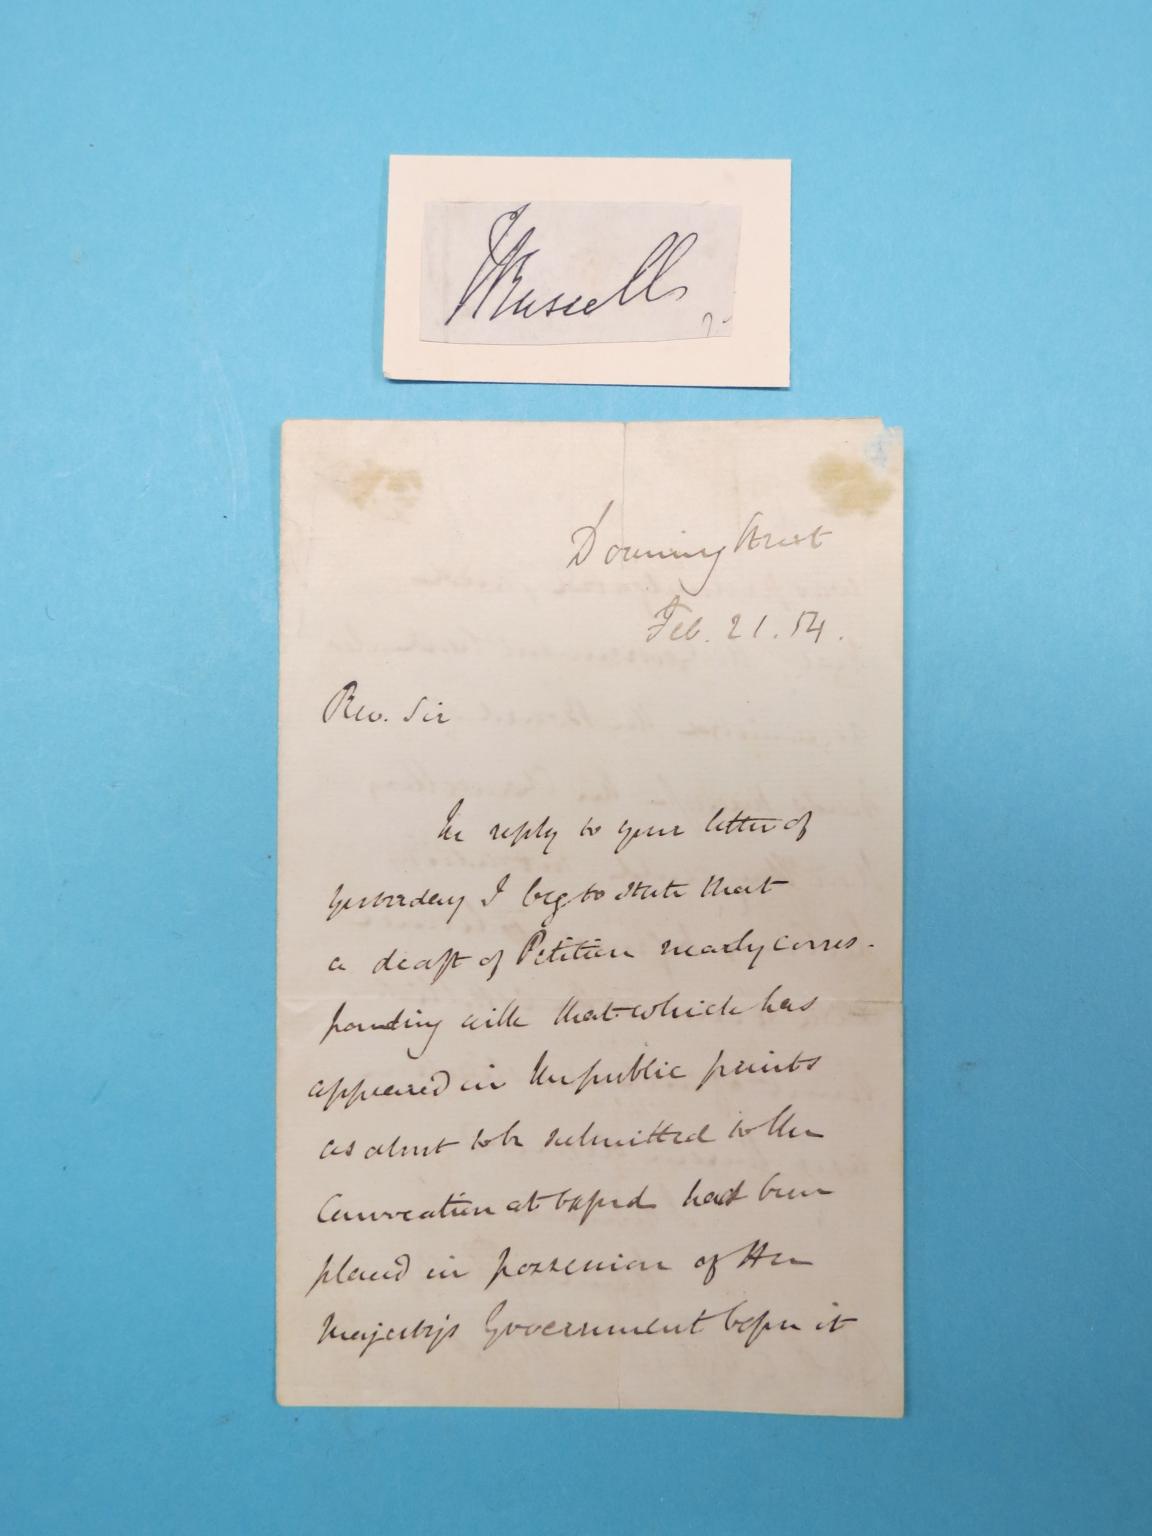 J Russell
Downing Street
Feb. 21. 54.
Rev. Sir
In reply to your letter of
yesterday I beg to state that
a draft of Petition nearly corres-
ponding with that which has
appeared in the public prints
as about to be submitted to the
Convocation at Oxford had been
placed in possession of Her
Majesty's Government before it